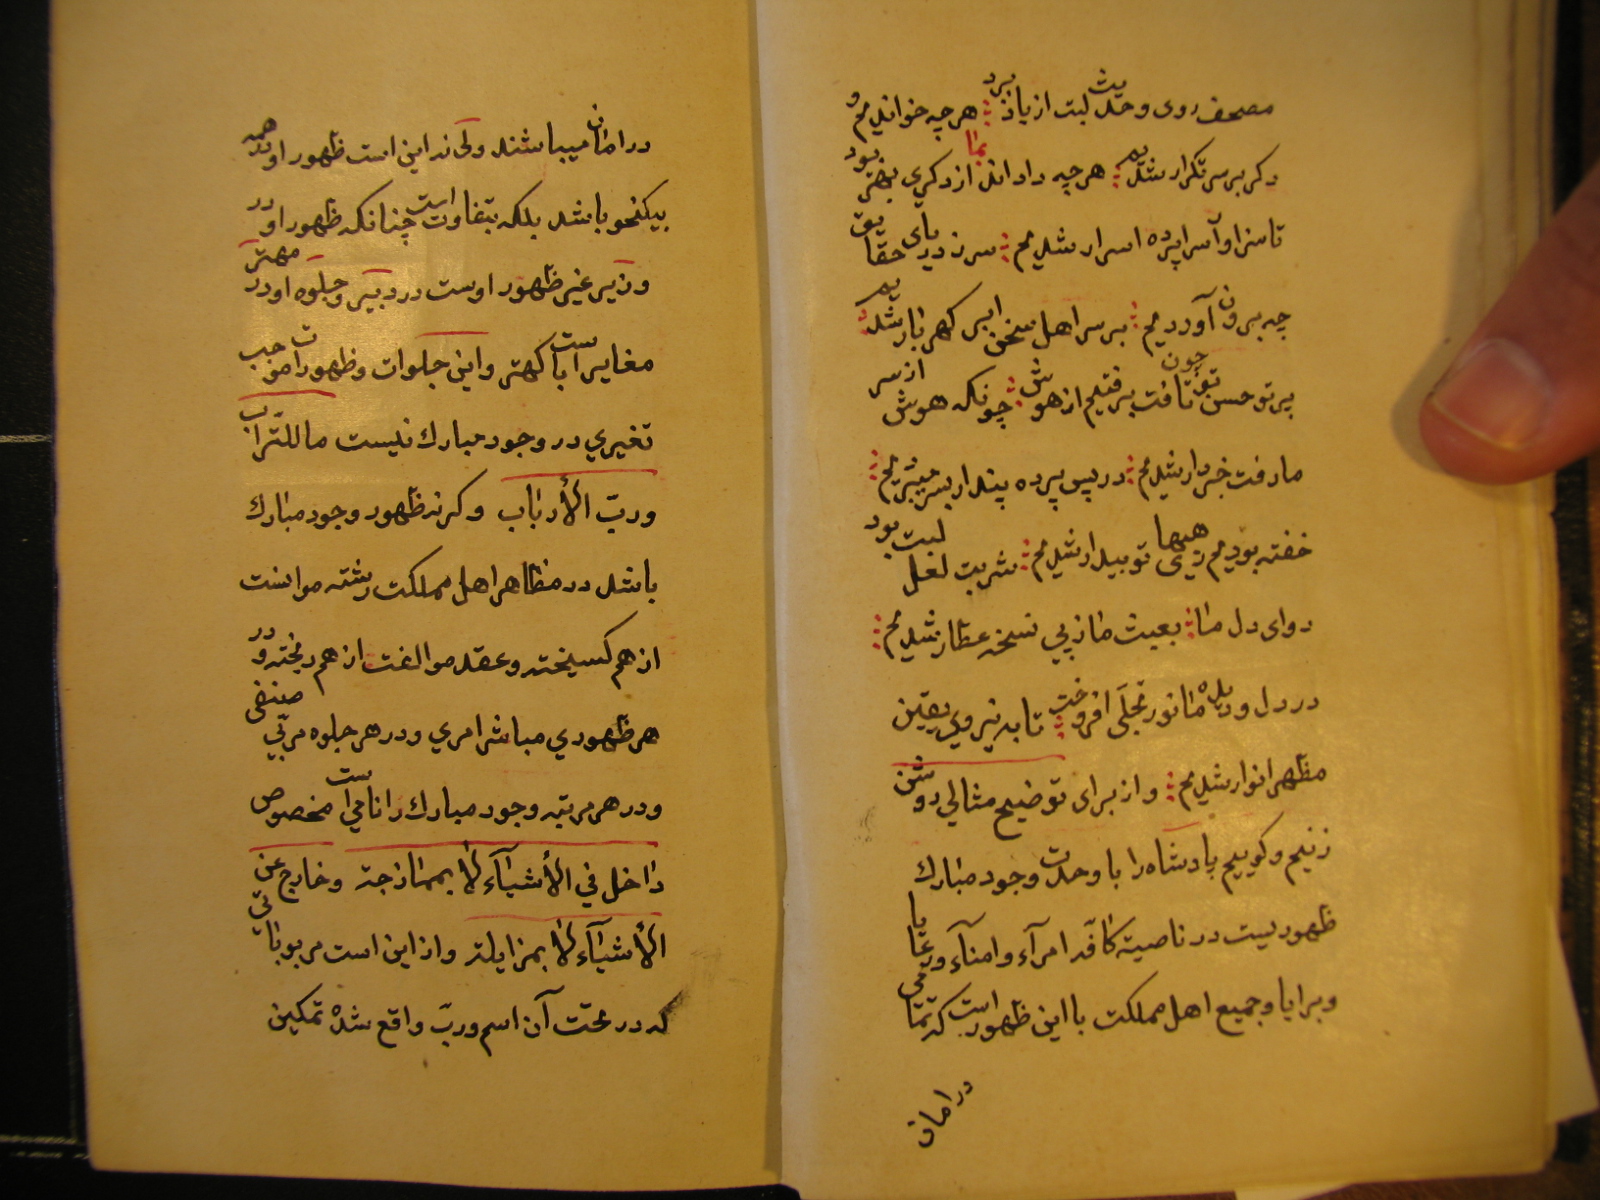 مصحف روی و حدیث لبت از یاد ببرد هرچه خواندیم و
دکر بر سر تکرار شدیم هرچه دادند از دکری بهتر بود
تا سزاوار سراپرده اسرار شدیم سر ز دریای حقایق
چه برون آوردیم بر سر اهل سخن ابر کهربار شدیم
پرتو حسن تو چون تافت برفتیم از هوش چونکه هوش از سر
ما رفت خبردار شدیم در پس پرده پندار بسر میبریم
خفته بودیم زهیهای تو بیدار شدیم شربت لعل لبت بود
دوای دل ما بعبث ما ز پی نسخه عطار شدیم
در دل و دیده ما نور تجلی افروخت تا به نیروی یقین
مظهر انوار شدیم و از برای توضیح مثالی روشن
زنیم و کوییم پادشاه را با وحدت وجود مبارک
ظهوریست در ناصیه کافه امرآء و امنآء و رعایا
و برایا و جمیع اهل مملکت با این ظهور است که تمامی
در امان
در امان میباشند ولی نه این است ظهور او در همه
بیکنحو باشد بلکه بتفاوت است چنانکه ظهور او در
وزیر غیر ظهور اوست در دبیر و جلوه او در مهتر
مغایر است با کهتر و این جلوات و ظهورات موجب
تغیری در وجود مبارک نیست ما للتراب
و رب الأرباب و کر نه ظهور وجود مبارک
باشد در مظاهر اهل مملکت رشته موانست
از هم کسیخته و عقد موالفت از هم ریخته و در
هر ظهوری مباشر امری و در هر جلوه مربی صنفی
و در هر مرتبه وجود مبارک را نامی است مخصوص
داخل في الأشیآء لا بممازجة و خارج عن
الأشیآء لا بمزایلة و از این است مربوباتی
که در تحت آن اسم و رب واقع شده تمکین